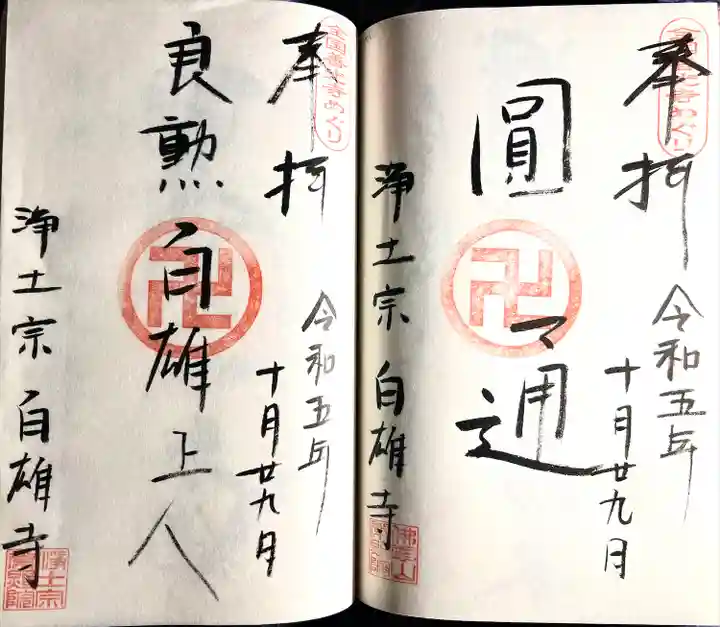 全国善光寺めぐり
奉拝
令和五年
十月廿九日
圓通
浄土宗 白雄寺
佛雲山
全国善光寺めぐり
奉拝
令和五年
十月廿九日
良勲白雄上人
浄土宗 白雄寺
浄土宗